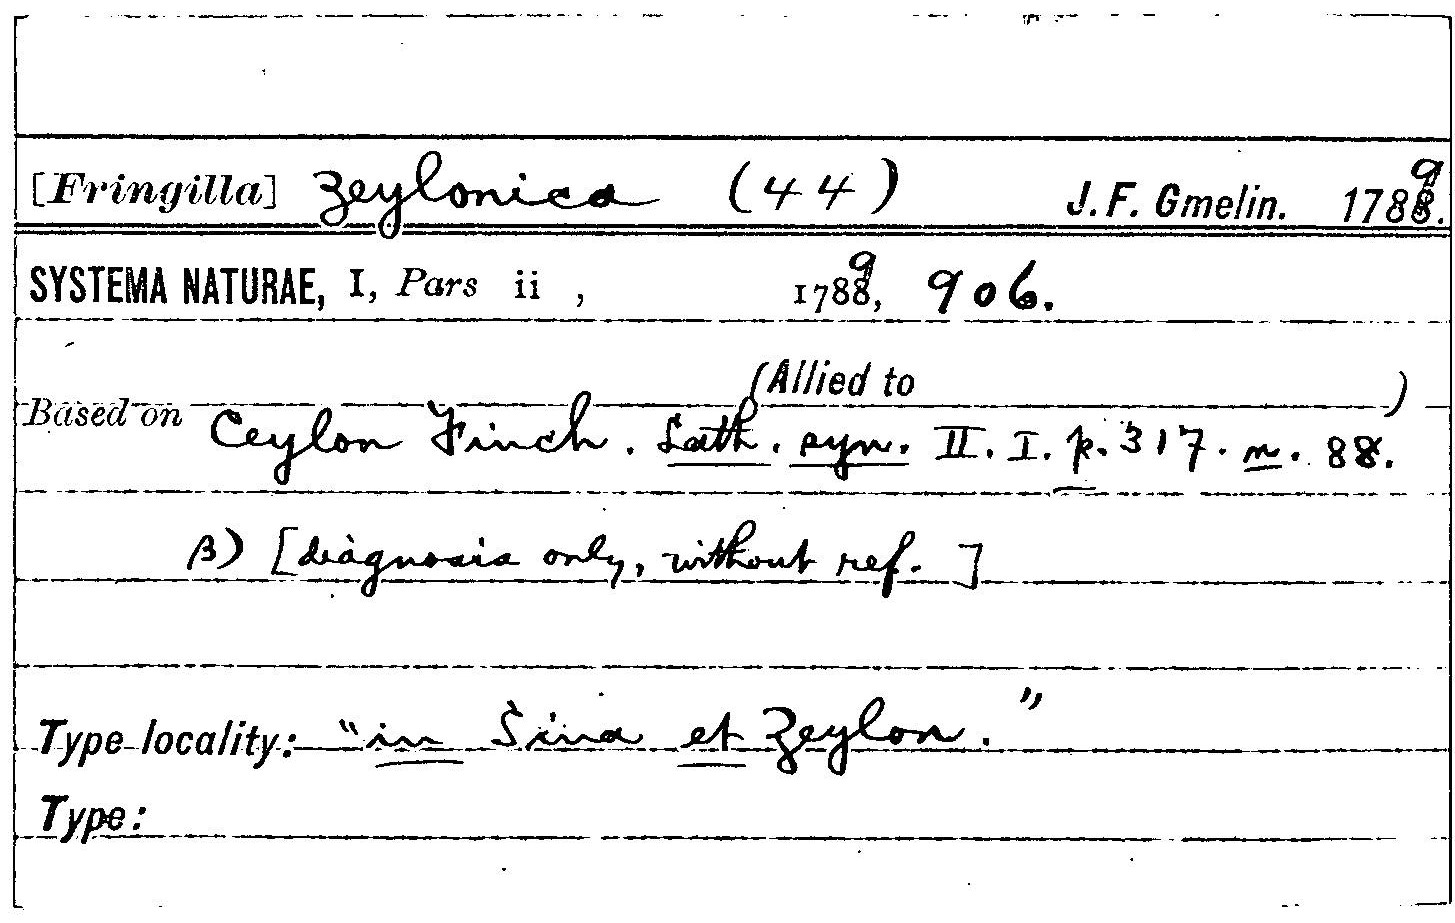 [Fringilla] zeylonica (44) J. F. Gmelin. 1789.
SYSTEMA NATURAE, I, Pars ii, 1789, 906.
(Allied to )
Based on Ceylon Finch. Lath. syn. II. I. p. 317. n. 88.
β) [diagnosis only, without ref.]
Type locality: "in Sina et Zeylon."
Type: